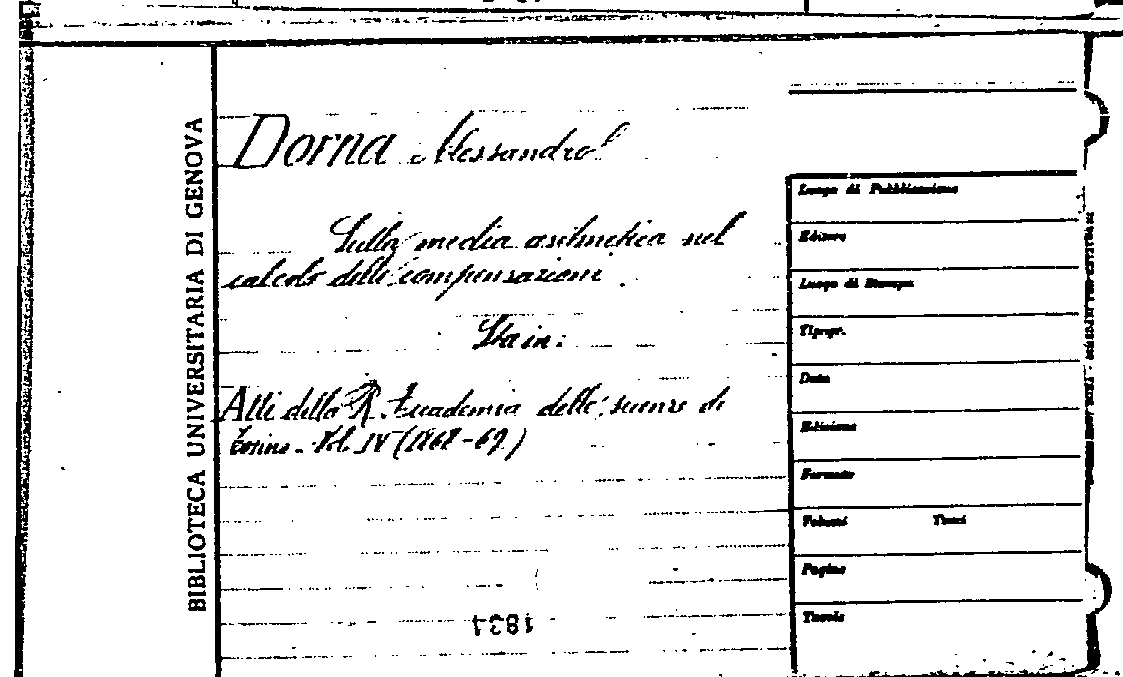 BIBLIOTECA UNIVERSITARIA DI GENOVA
Dorna Alessandro
Sulla media aritmetica nel
calcolo delle compensazioni.
Sta in:
Atti della R. Accademia delle scienze di
Torino. Vol. IV (1868-69)
1831
Luogo di Pubblicazione
Editore
Luogo di Stampa
Tipogr.
Data
Edizione
Formato
Volumi Tomi
Pagine
Tavole